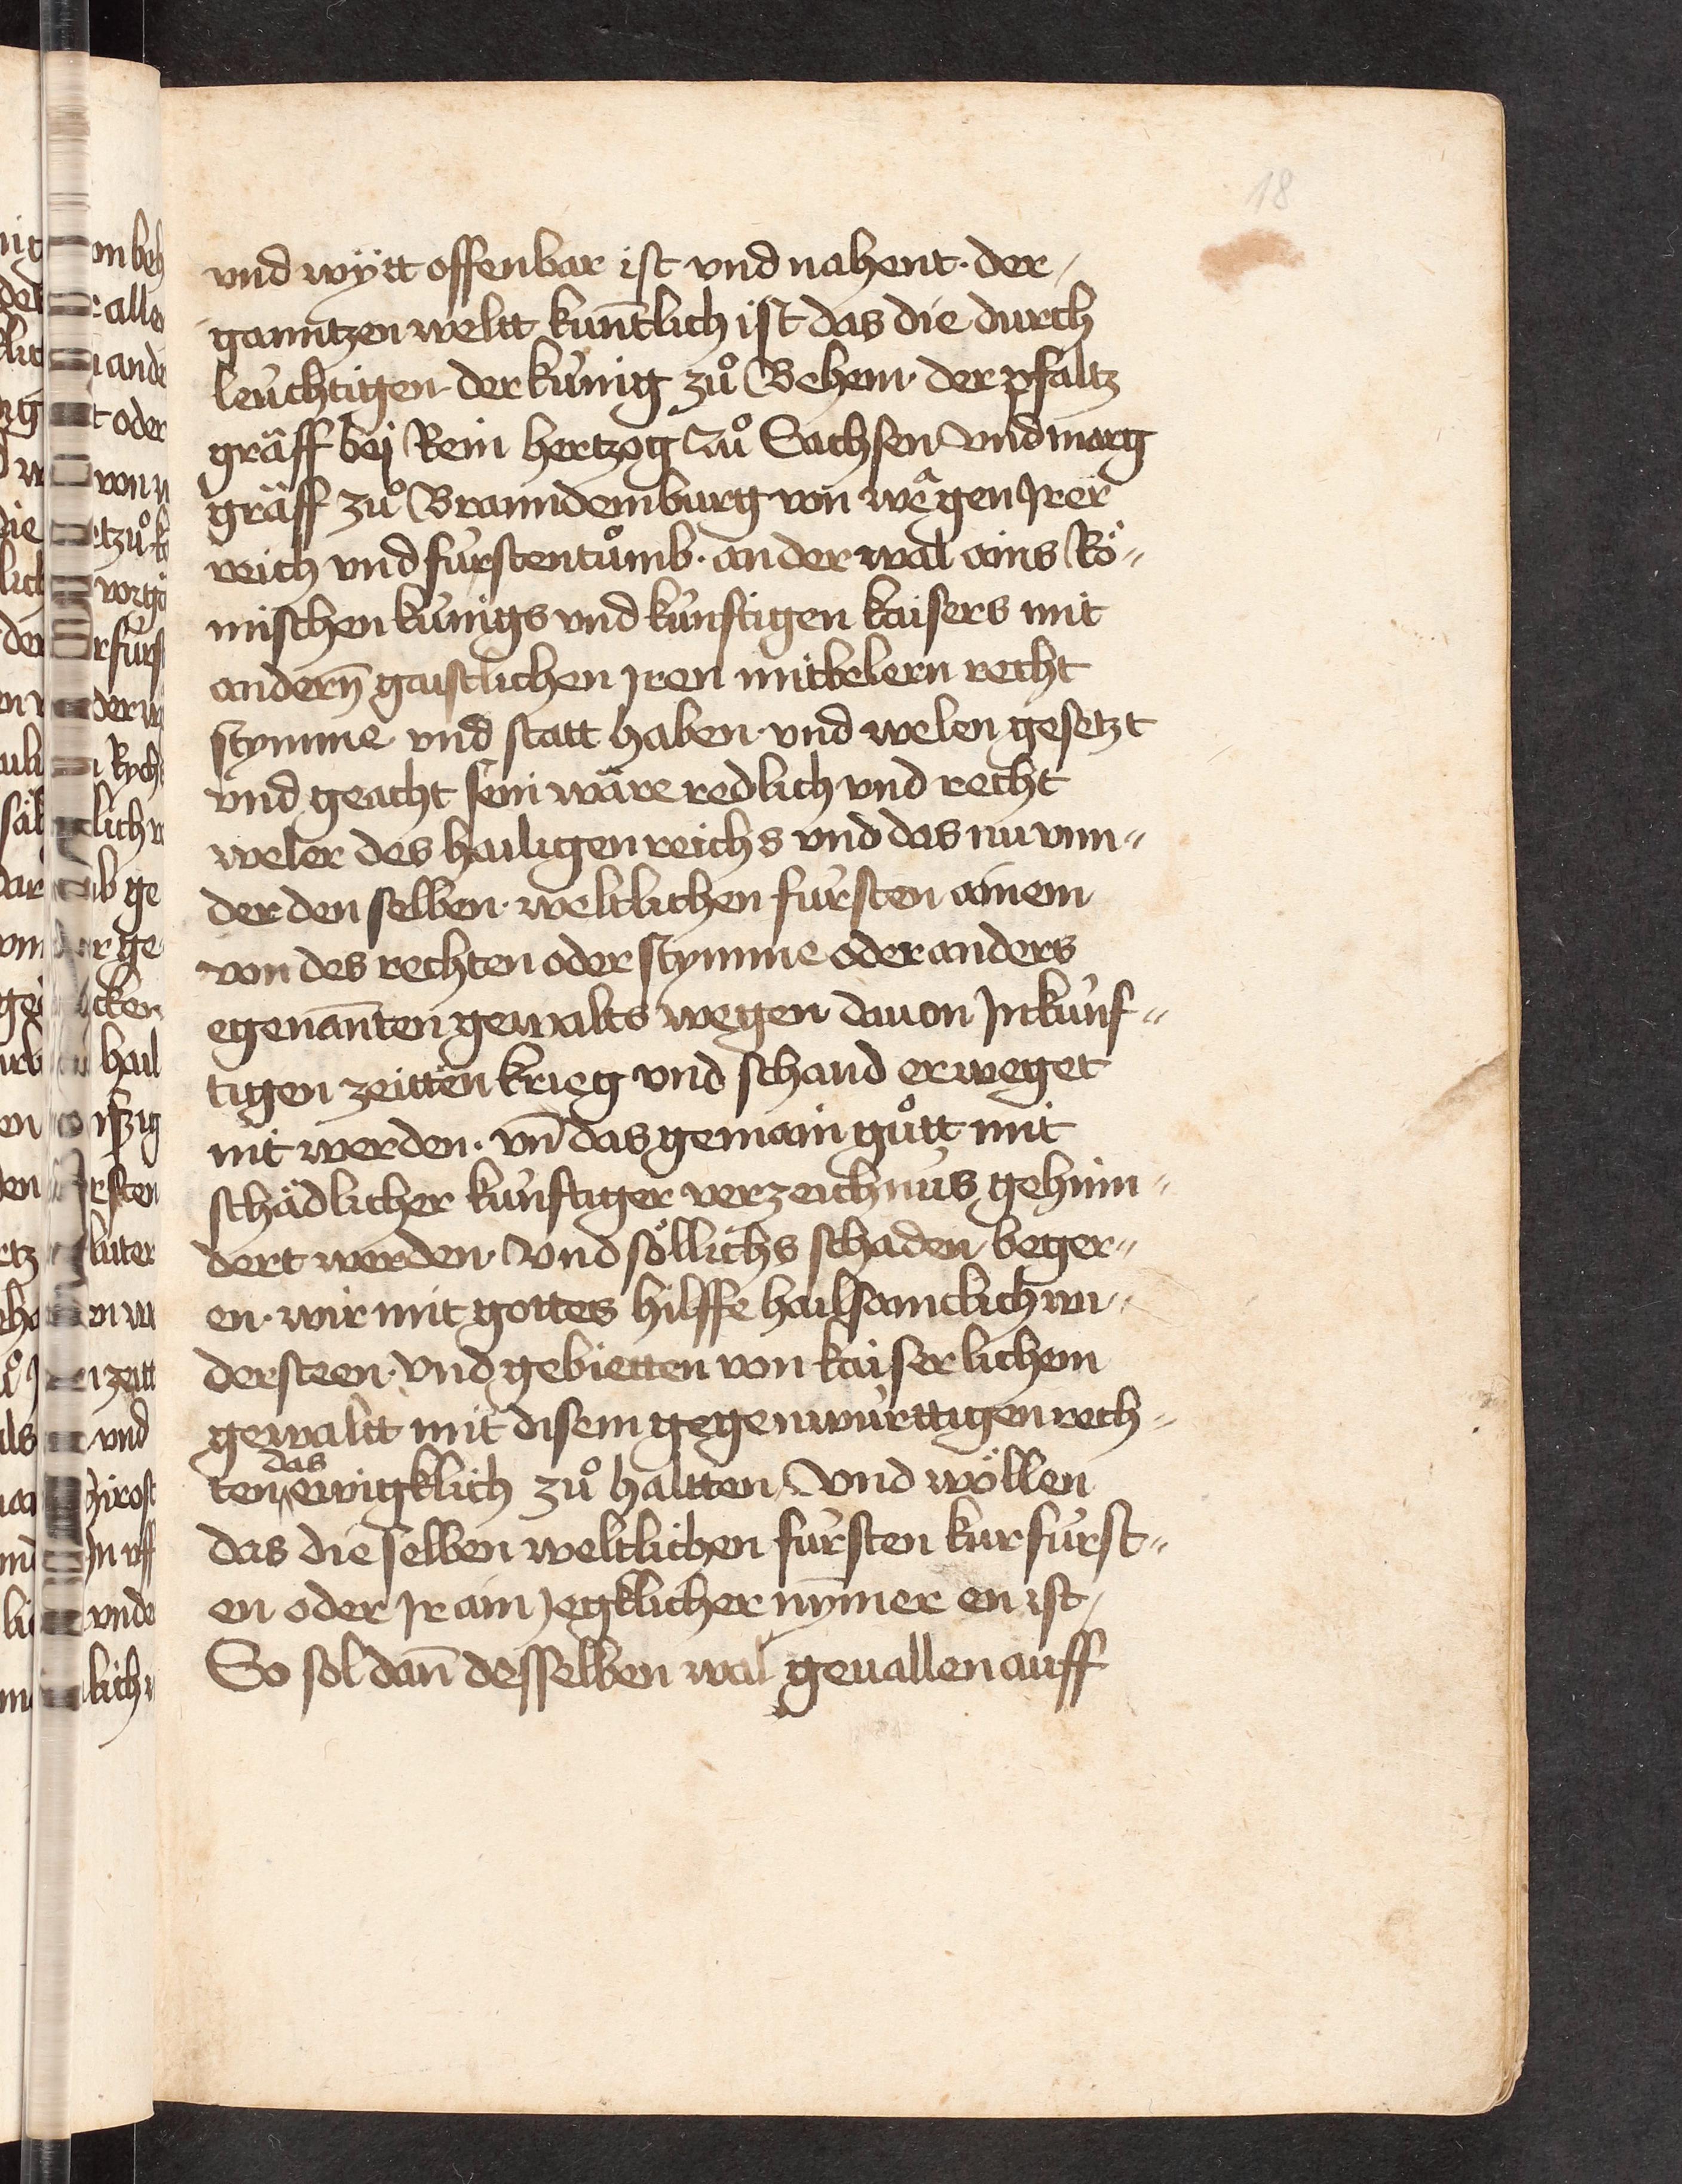 18
vnd wÿtt offenbar ist vnd nahent · der /
ganntzen weltt kun̄tlich ist das die durch
leuchtigen der kúnig zuͦ Behem · der pfaltz
gräff bej Rein hertzog Zuͦ Sachsen Vnd marg
gräff zuͦ Branndemburg von wêgen Jrer
reich vnd fúrstentuͦmb · an der wal ains Rö〃
mischen kúnigs vnd kúnftigen kaisers mit
andern̄ gaistlichen jren mitbelern recht
stymme vnd statt haben · vnd welen gesetzt
vnd geacht sein wäre redlich vnd recht
weler des hailigen reichs vnd das nu vnn〃
der den selben · weltlichen fúrsten ainem
von des rechten oder stymme oder anders
egenan̄ten gewalts wegen dauon Jnkúnf〃
tigen zeitten krieg vnd schand erweget
nit werden · vn̄ das gemain guͦtt mit
schädlicher kúnftiger verzeichnus gehinn〃
dert werden · Vnd söllichs schaden beger〃
en · wir mit gottes hilffe hailsamclich wi〃
dersteen · Vnd gebietten von kaiserlichem
gewaltt mit disem gegenwúrttigen rech〃
ten das ewigklich zuͦ haltten Vnd wöllen
das die selben weltlichen fúrsten kurfúrst〃
en oder jr ain jegklicher nym̄er en ist /
So sol dan̄ desselben wal geuallen auff